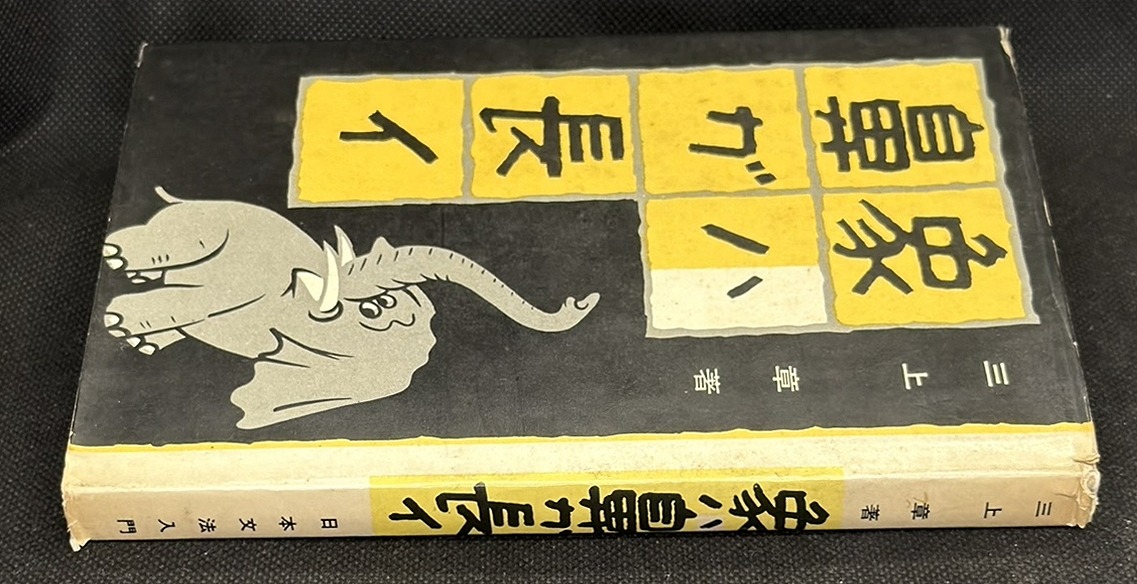 三上章著
象ハ
鼻ガ長イ
三上章著
象ハ鼻ガ長イ
日本文法入門